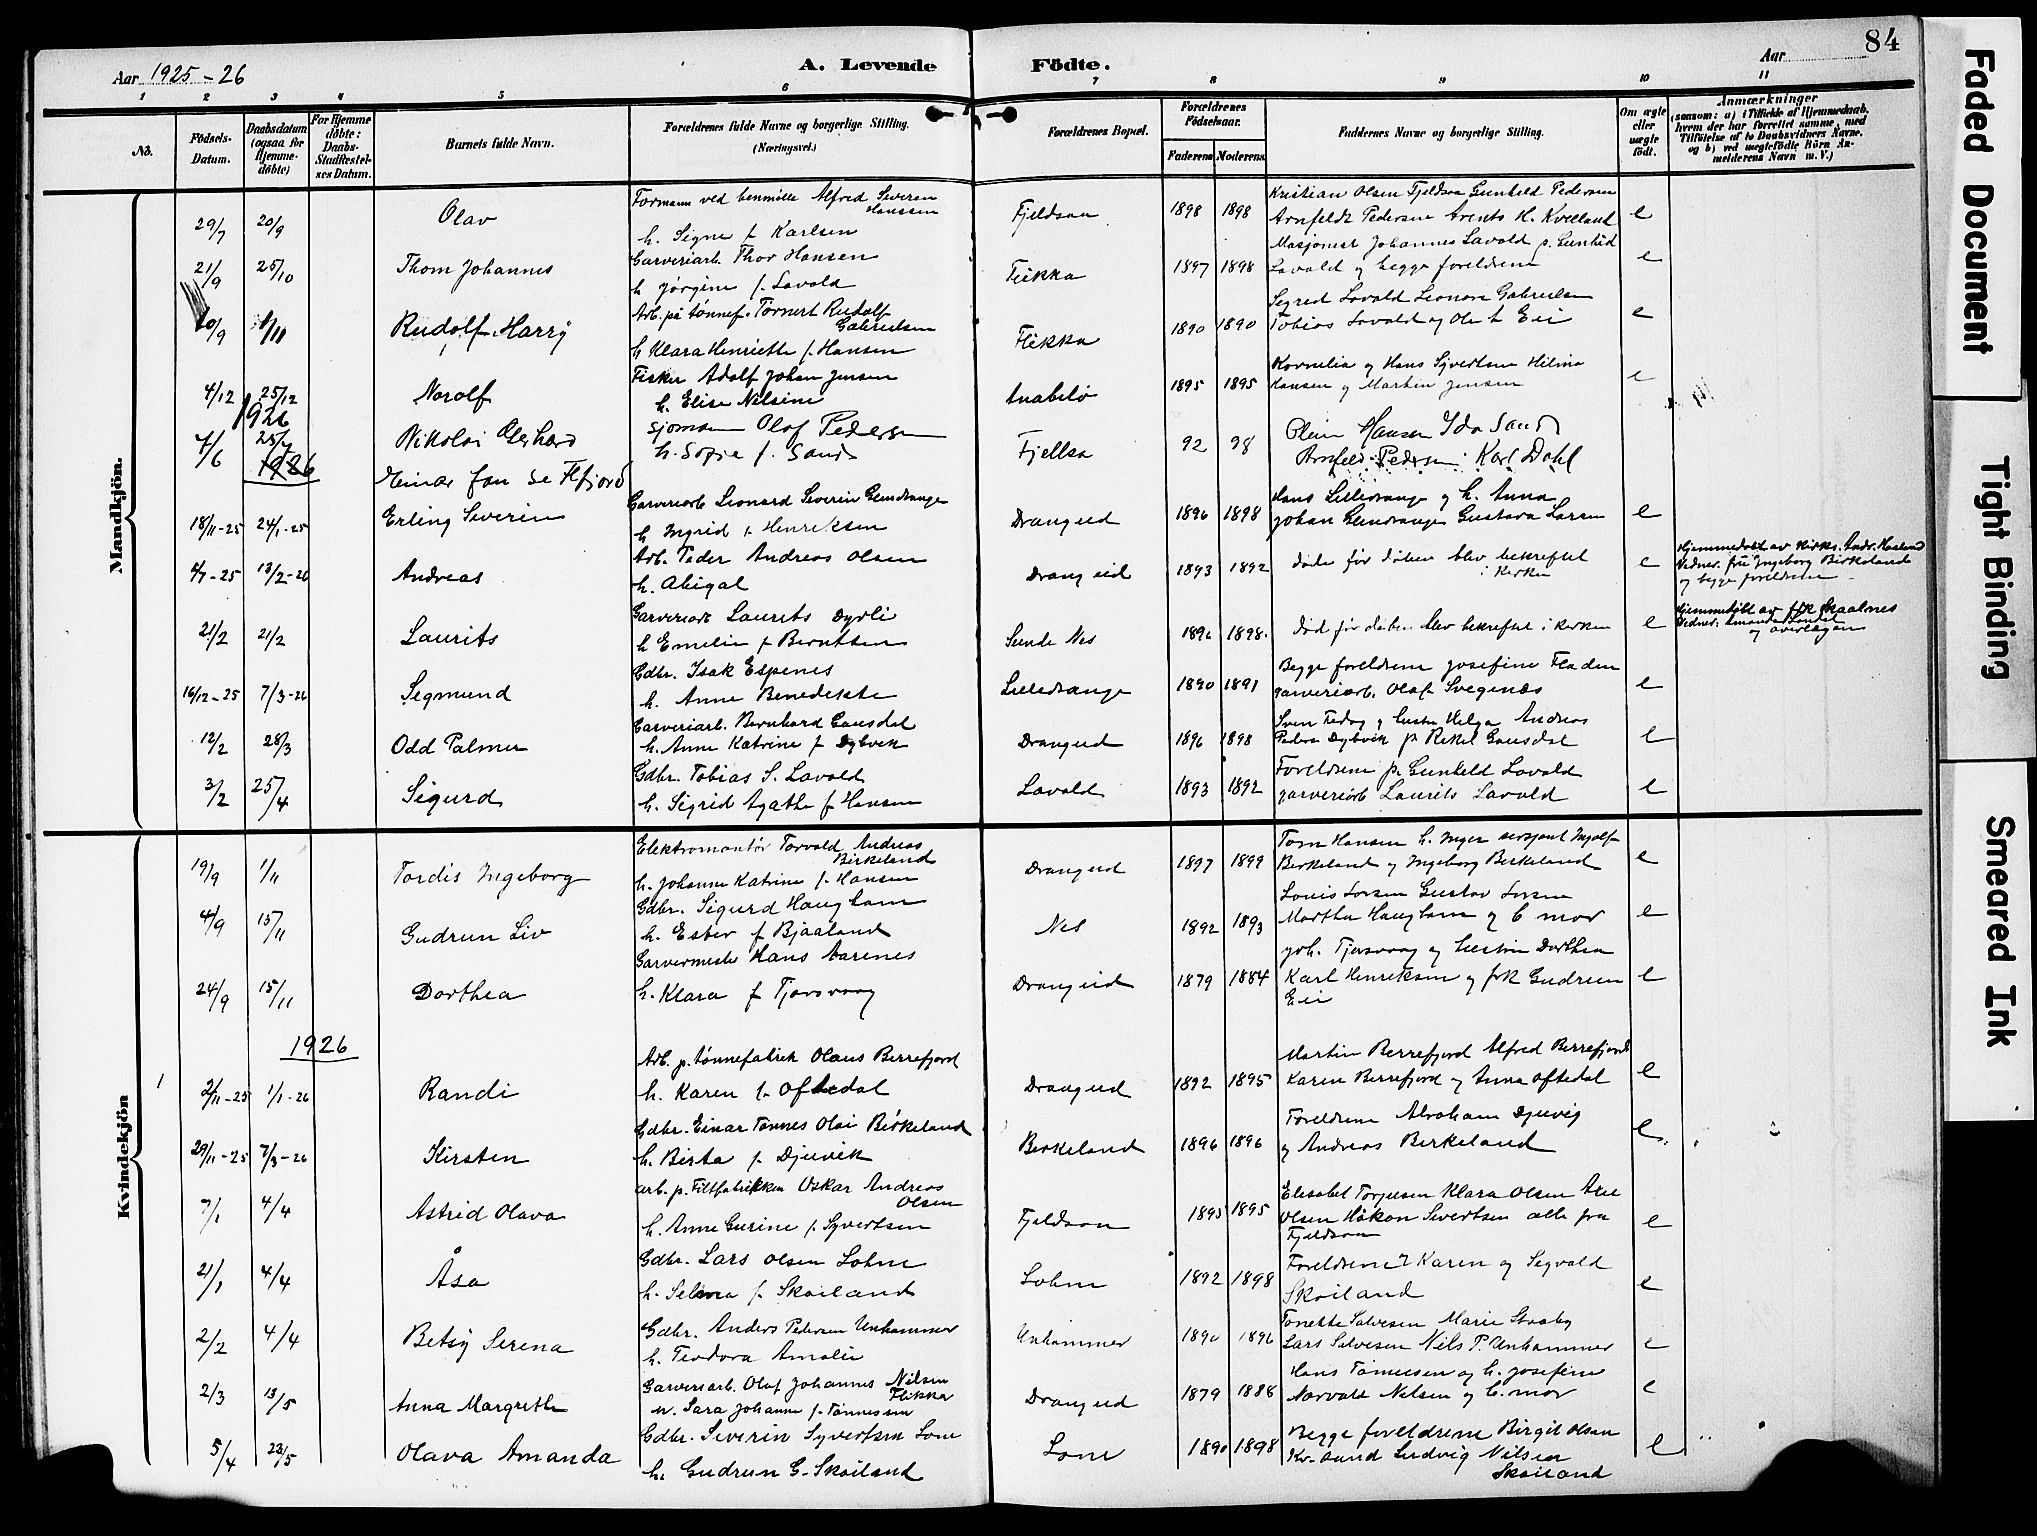 84
Aar 1925-26
A. Levende Födte.
Aar
1 2 3 4 5 6 7 8 9 10 11
No.
Födsels-Datum.
Daabsdatum (ogsaa for Hjemme-döbte)
For Hjemme döbte: Daabs-Stadfæstel-ses Datum.
Barnets fulde Navn.
Forældrenes fulde Navne og borgerlige Stilling.
(Næringsvei.)
Forældrenes Bopæl.
Forældrenes Födselsaar.
Faderens Moderens
Faddernes Navne og borgerlige Stilling.
Om ægte eller uægte födt.
Anmærkninger
(saasom: a) i Tilfælde af Hjemmedaab, hvem der har forrettet samme, med Tilföielse af to Daabsvidners Navne, og b) ved uægtefödte Börn An-melderens Navn m. V.)
Mandkjön.
29/7 20/9 Olav Formann ved benmölle Alfred Severin Hanssen
h. Signe f. Karlsen Fjeldsaa 1898 1898 Kristian Olsen Fjeldsaa Gunhild Pedersen
Arnfeldt Pedersen Arents H. Kvelland e
21/9 25/10 Thom Johannes Garveriarb. Thor Hansen
h. Jörgine f. Lavold Flikka 1897 1898 Johannes Lavold
Lavold og begge foreldrene e
20/9 1/11 Rudolf Harry Arb. på tønnef. Rudolf Gabrielsen
h. Klara Henriette f. Hansen Flikka 1890 1890 Sigrid Lavold Leonora Gabrielsen
Tobias Lavold og e
4/12 25/12 Norolf Fisker Adolf Johan Jensen
h. Elise Nilsine Anabelö 1895 1895 Kornelia og Hans Syvertsen Hilma
Hansen og Martin Jensen e
1926
7/6 25/7 Nikolai Gerhard Sjömann Olaf Pedersen
h. Sofie f. Sand Fjellsa 92 98 Hansen Ida Sand
Arnfeld Pedersen Karl Dahl
1926
18/11-25 24/1-25 Erling Severin Garveriarb Leonard Severin Glendrange
h Ingrid f. Henriksen Drangeid 1896 1898 Hans Lilledrange og h. Anna
Johan Glendrange Gustava Larsen e
4/7-25 13/2-26 Andreas Arb. Peder Andreas Olsen
h. Abigal Drangeid 1893 1892 døde før dåben blev bekreftet
i kirken e Hjemmedøbt av
frü Ingeborg Birkeland
og begge foreldrene
21/2 21/2 Laurits Garveriarb Laurits Dyrli
h Emelie f Berntsen Sunde Nes 1896 1898. død før dåben blev bekreftet i kirken e Hjemmedøbt av frk Skaalnes
16/12-25 7/3-26 Sigmund Gdbr. Isak Espenes
h. Anne Benedikte Lilledrange 1890 1891 Begge foreldrene Josefine Fladen
garveriarb. Olaf Svegenæs e
12/2 28/3 Odd Palmer Garveriarb. Bernhard Gausdal
h. Anne Katrine f Dybvik Drangeid 1896 1898 Helga Andreas
Peder Dybvik Gausdal e
3/2 25/4 Sigurd Gdbr. Tobias S. Lavold
h. Sigrid Agathe f Hansen Lavold 1893 1892 Foreldrene f. Gunhild Lavold
garveriarb Laurits Lavold e
Kvindekjön
19/9 1/11 Tordis Ingeborg Elektromontör Torvald Andreas Birkeland
h. Johanne Katrine f. Hansen Drangeid 1897 1899 Tom Hansen h. Inger sersjant Ingolf
Birkeland og Ingeborg Birkeland e
4/9 15/11 Gudrun Liv Gdbr. Sigurd Haughom
h. Ester f Bjaaland Nes 1892 1893 Louis Larsen Gustav Larsen
Martha Haughom og b mor e
24/9 15/11 Dorthea Garvermester Hans Aarenes
h. Klara f Tjorsvaag Drangeid 1879 1884 Joh. Tjorsvaag og Dorthea
Karl Henriksen og frk Gudrun
Eie e
1926
1 2/11-25 1/1-26 Randi Arb. p. tønnefabrik Olaus Berrefjord
h. Karen f. Oftedal Drangeid 1892 1895 Martin Berrefjord Alfred Berrefjord
Karen Berrefjord og Anna Oftedal e
29/11-25 7/3-26 Kirsten Gdbr. Einar Tønnes Olai Birkeland
h. Berta f. Djuvik Birkeland 1896 1896 Foreldrene Abraham Djuvig
og Andreas Birkeland e
7/1 4/4 Astrid Olava arb. p. Filtfabrikken Oskar Andreas Olsen
h. Anne Gurine f. Syvertsen Fjeldsaa 1895 1895 Elisabet Torjusen Klara Olsen
Olsen Håkon Sivertsen alle fra
Fjeldsaa e
21/1 4/4 Åsa Gdbr. Lars Olsen Lohne
h. Selma f. Skoiland Lohne 1892 1898 Foreldrene Karen og Sigvald
Skoiland e
2/2 4/4 Betsy Serena Gdbr. Anders Pedersen Unhammer
h. Teodora Amalie Unhammer 1890 1896 Tonette Salvesen Marie
Lars Salvesen Nils P. Unhammer e
2/3 13/5 Anna Margrethe Garveriarb. Olaf Johannes Nilsen Flikka
h. Sara Johanne f. Tønnessen Drangeid 1879 1886 Hans Tønnessen og h. Josefine
Norvald Nilsen og b. mor e
5/4 23/5 Olava Amanda Gdbr. Severin Syvertsen Lone
h. Gudrun G. Skoiland Lone 1890 1898 Begge foreldrene Birgit Olsen
Ludvig Nilsen
Skoiland e
Faded Document
Tight Binding
Smeared Ink